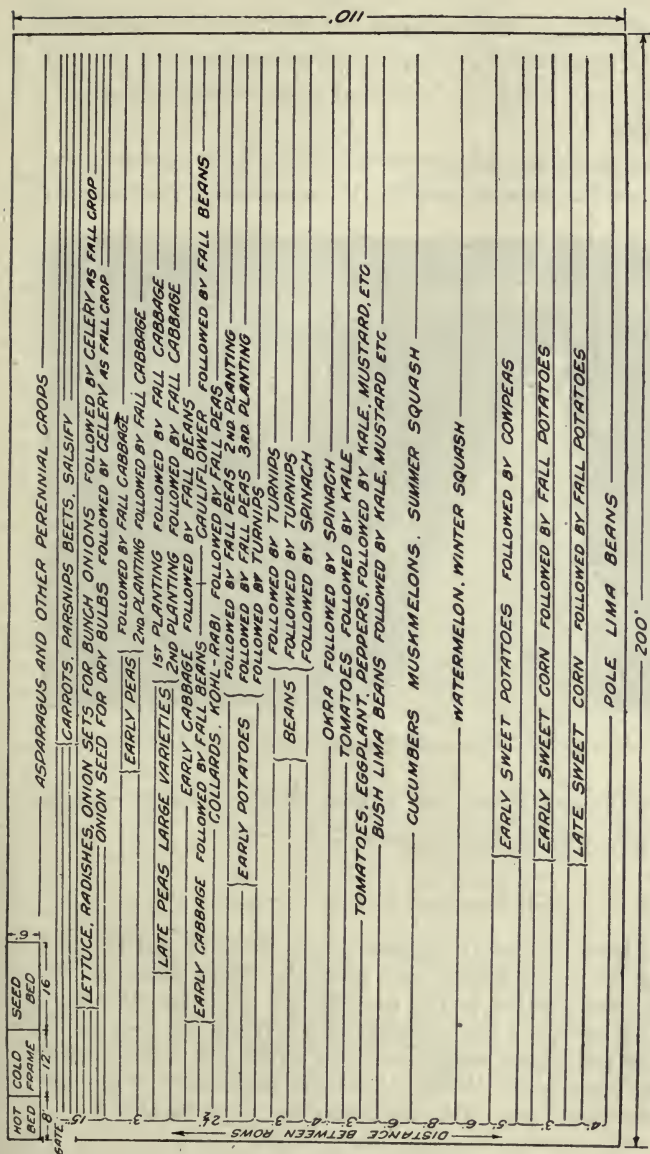 110'
HOT BED
COLD FRAME
SEED BED
6'
8'
12'
16'
GATE
ASPARAGUS AND OTHER PERENNIAL CROPS
15"
CARROTS, PARSNIPS BEETS, SALSIFY
LETTUCE, RADISHES, ONION SETS FOR BUNCH ONIONS FOLLOWED BY CELERY AS FALL CROP
ONION SEED FOR DRY BULBS FOLLOWED BY CELERY AS FALL CROP
3'
EARLY PEAS
FOLLOWED BY FALL CABBAGE
2ND PLANTING FOLLOWED BY FALL CABBAGE
LATE PEAS LARGE VARIETIES
1ST PLANTING FOLLOWED BY FALL CABBAGE
2ND PLANTING FOLLOWED BY FALL CABBAGE
EARLY CABBAGE FOLLOWED BY FALL BEANS
EARLY CABBAGE FOLLOWED BY FALL BEANS CAULIFLOWER FOLLOWED BY FALL BEANS
COLLARDS, KOHL-RABI FOLLOWED BY FALL PEAS
2½'
EARLY POTATOES
FOLLOWED BY FALL PEAS 2ND PLANTING
FOLLOWED BY FALL PEAS 3RD PLANTING
FOLLOWED BY TURNIPS
3'
BEANS
FOLLOWED BY TURNIPS
FOLLOWED BY TURNIPS
FOLLOWED BY SPINACH
4'
OKRA FOLLOWED BY SPINACH
3'
TOMATOES FOLLOWED BY KALE
TOMATOES, EGGPLANT, PEPPERS, FOLLOWED BY KALE, MUSTARD, ETC
BUSH LIMA BEANS FOLLOWED BY KALE, MUSTARD ETC
6'
CUCUMBERS MUSKMELONS, SUMMER SQUASH
8'
WATERMELON, WINTER SQUASH
6'
5'
EARLY SWEET POTATOES FOLLOWED BY COWPEAS
3'
EARLY SWEET CORN FOLLOWED BY FALL POTATOES
LATE SWEET CORN FOLLOWED BY FALL POTATOES
4'
POLE LIMA BEANS
DISTANCE BETWEEN ROWS
200'